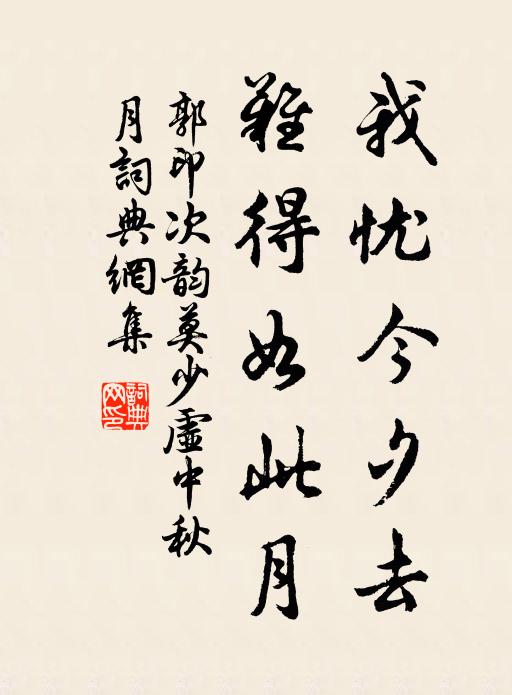 我忧今夕去
難得如此月
郭印次韵莫少虛中秋
月詞典網集
詞典
网印